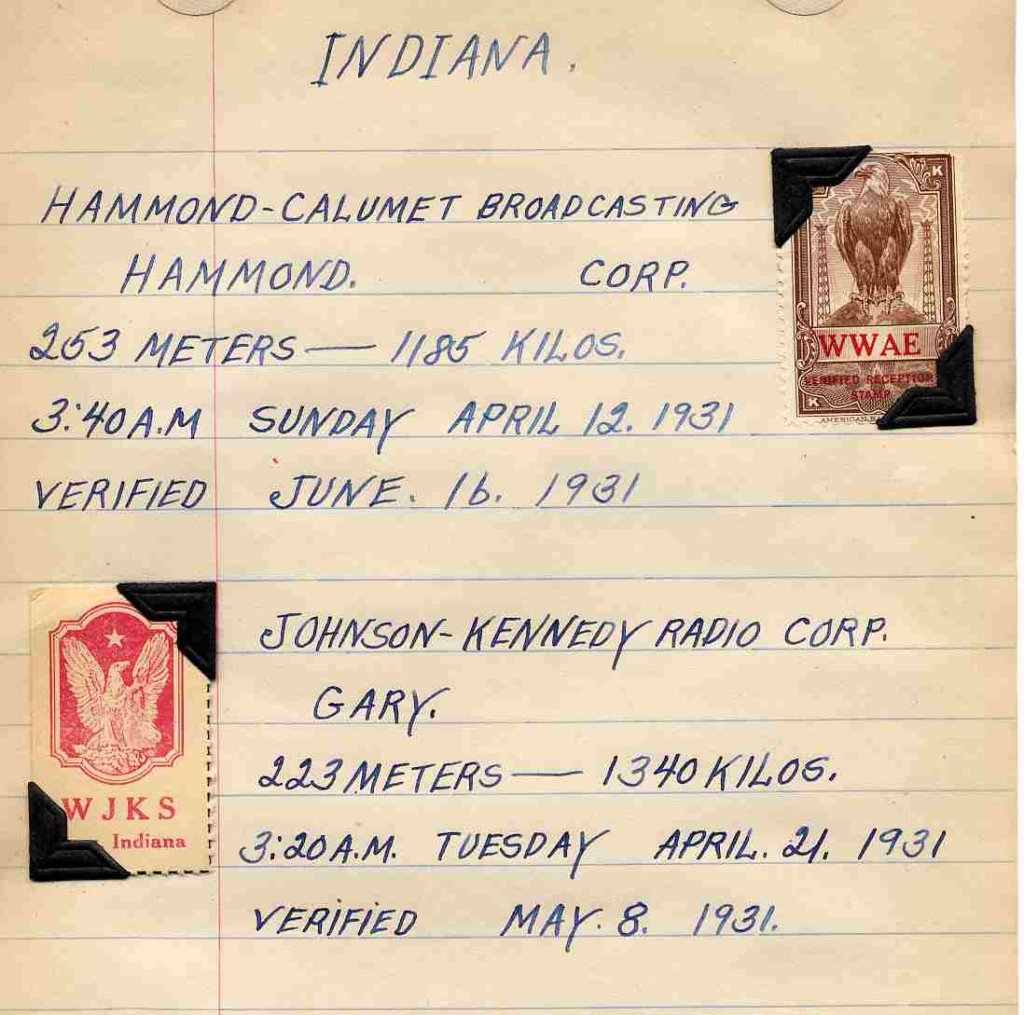 INDIANA.
HAMMOND-CALUMET BROADCASTING
HAMMOND. CORP.
253 METERS — 1185 KILOS.
3:40 A.M SUNDAY APRIL 12. 1931
VERIFIED JUNE. 16. 1931
K
WWAE
VERIFIED RECEPTION
STAMP
K
AMERICAN
JOHNSON-KENNEDY RADIO CORP.
GARY.
223 METERS — 1340 KILOS.
3:20 A.M. TUESDAY APRIL. 21. 1931
VERIFIED MAY. 8. 1931.
WJKS
Indiana